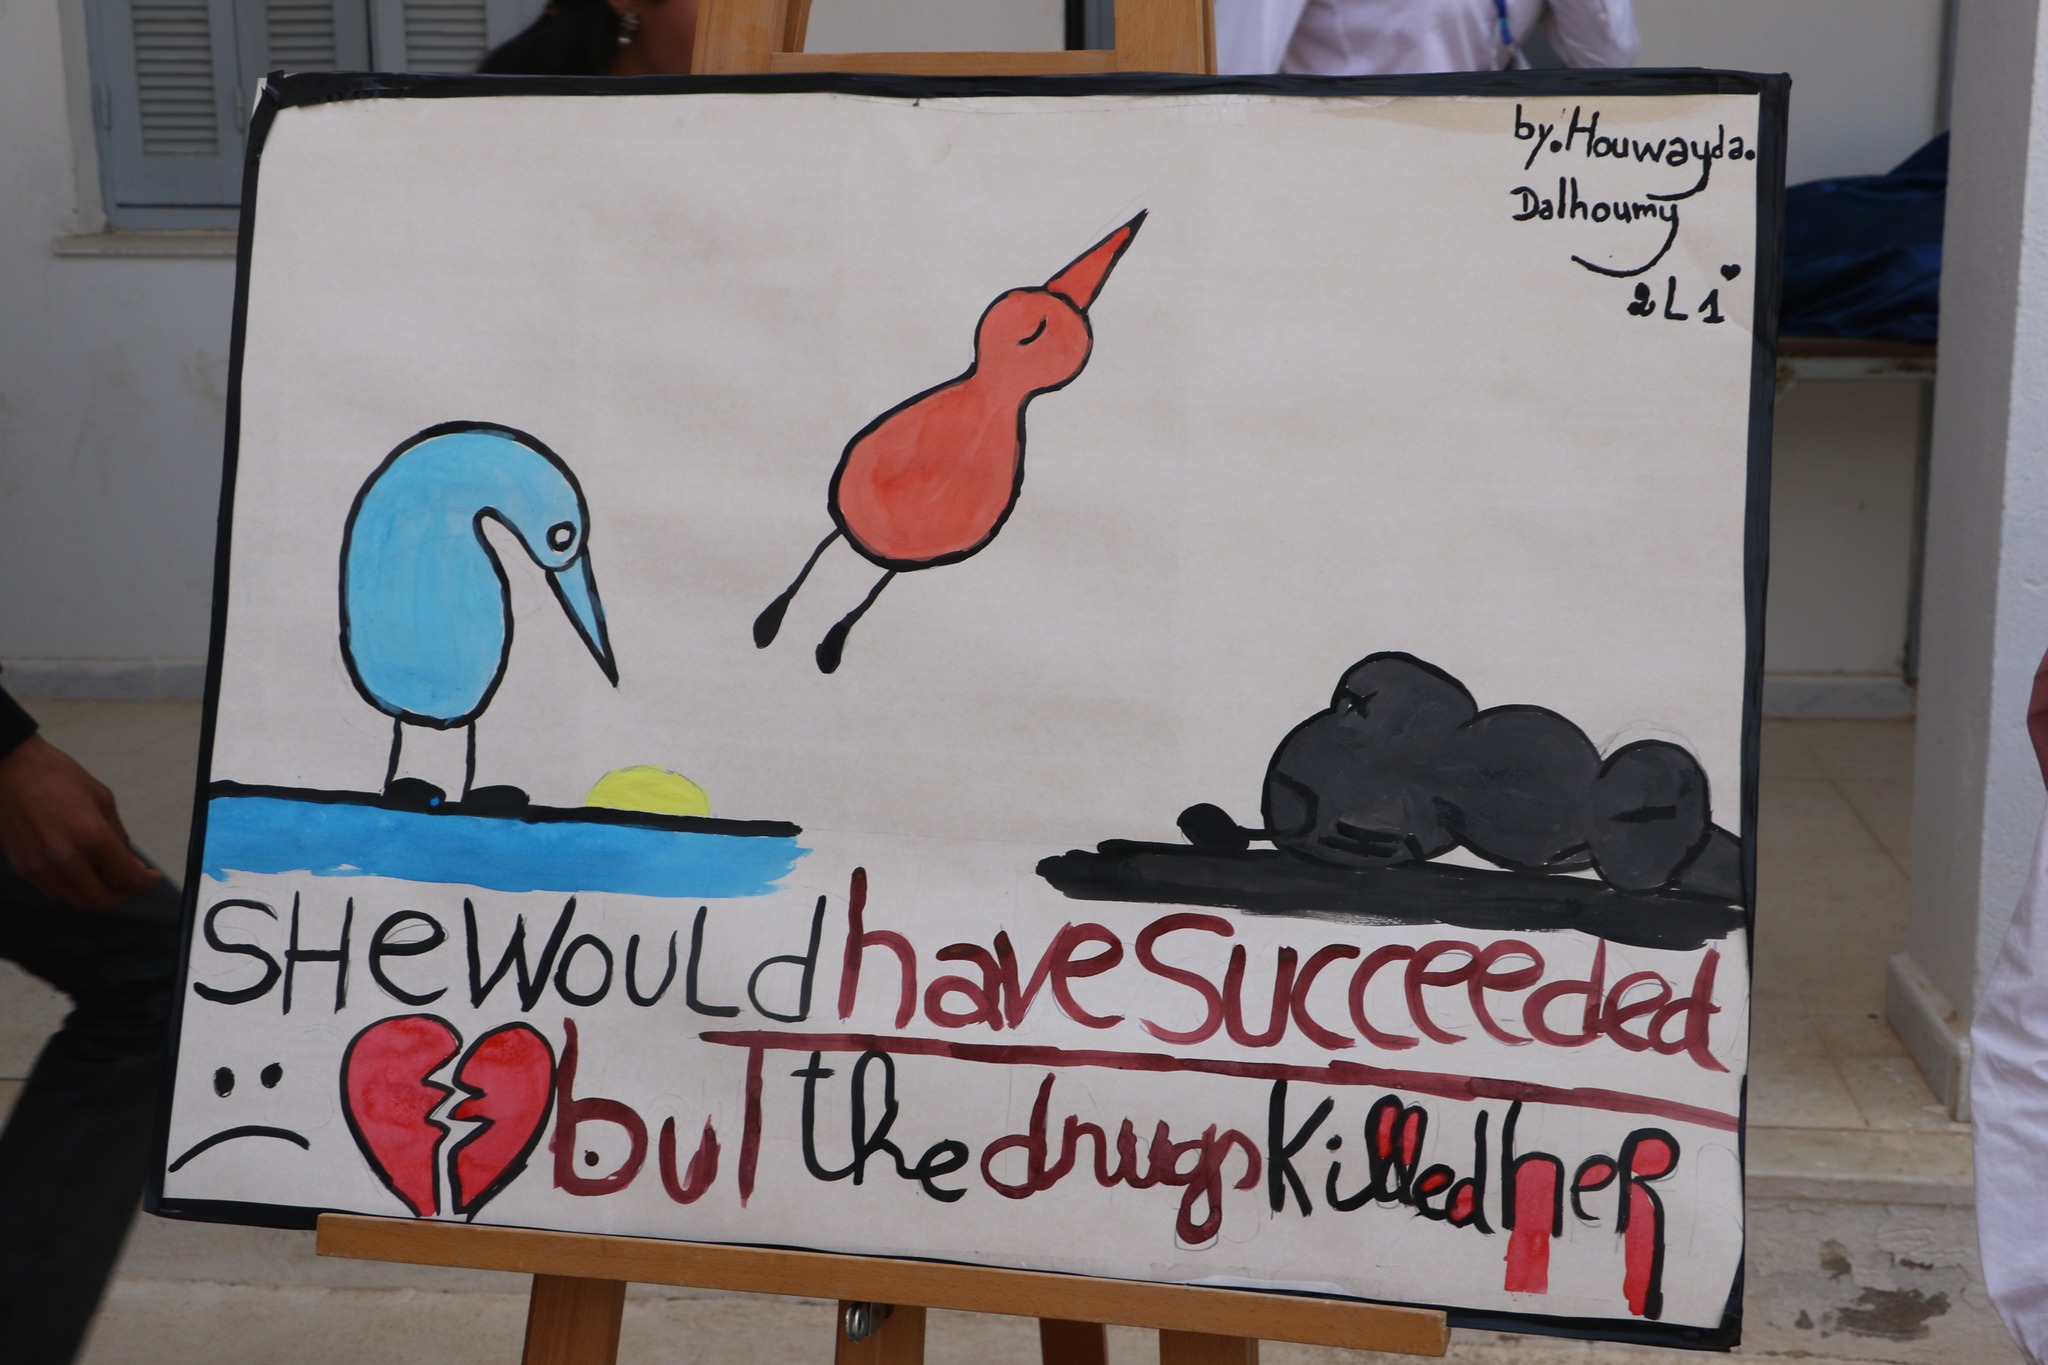 by. Houwayda.
Dalhoumy
2L1
SHe WouLd have Succeeded
but the drugs Killed heR